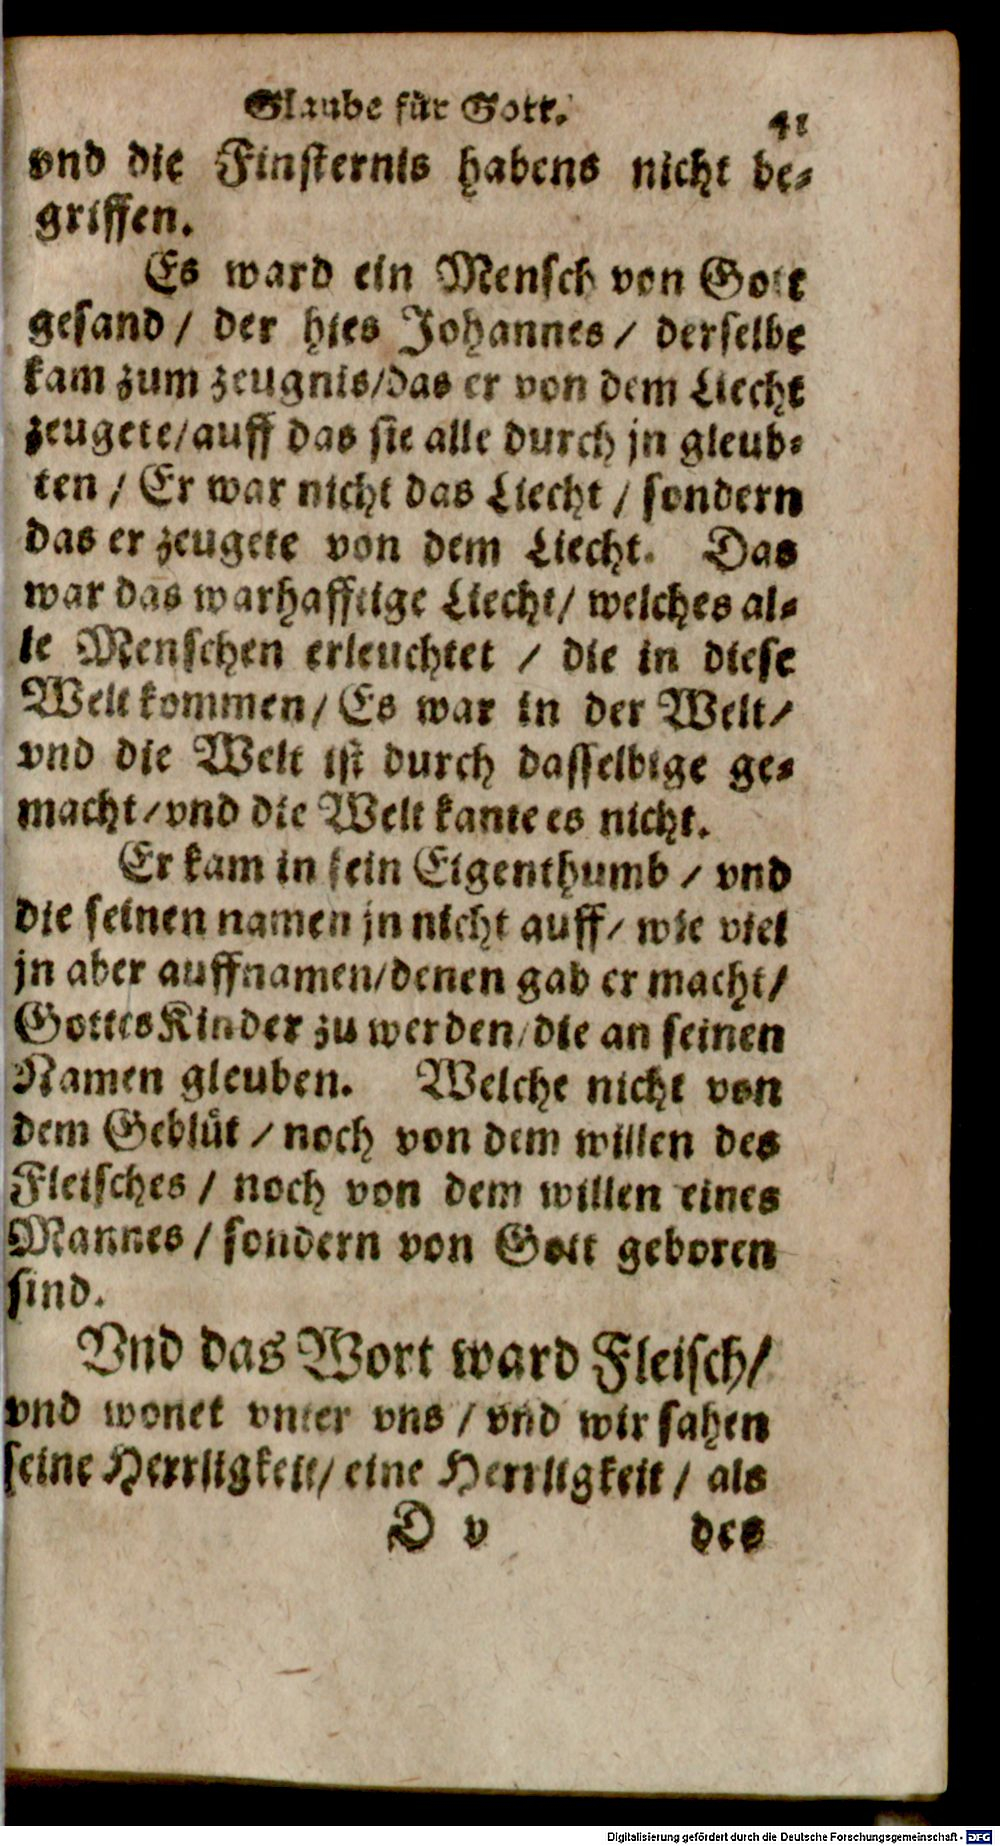 Glaube für Gott.
41
vnd die Finsternis habens nicht be-
griffen.
Es ward ein Mensch von Gott
gesand / der hies Johannes / derselbe
kam zum zeugnis/das er von dem Liecht
zeugete/auff das sie alle durch jn gleub-
ten / Er war nicht das Liecht / sondern
das er zeugete von dem Liecht. Das
war das warhafftige Liecht/ welches al-
le Menschen erleuchtet / die in diese
Welt kommen/ Es war in der Welt/
vnd die Welt ist durch dasselbige ge-
macht/vnd die Welt kante es nicht.
Er kam in sein Eigenthumb / vnd
die seinen namen jn nicht auff/ wie viel
jn aber auffnamen/denen gab er macht/
Gottes Kinder zu werden/die an seinen
Namen gleuben. Welche nicht von
dem Geblüt / noch von dem willen des
Fleisches / noch von dem willen eines
Mannes / sondern von Gott geboren
sind.
Vnd das Wort ward Fleisch/
vnd wonet vnter vns / vnd wir sahen
seine Herrligkeit/ eine Herrligkeit / als
D v
des
Digitalisierung gefördert durch die Deutsche Forschungsgemeinschaft - DFG